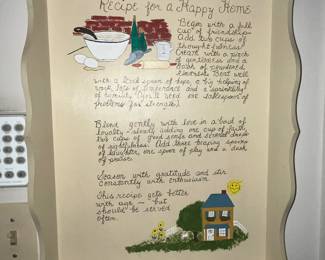 Recipe for a Happy Home
Begin with a full
cup of friendship
Add two cups of
thoughtfulness
Cream with a pinch
of gentleness and a
dash of powdered
sincerity Beat well
with a spoon of hope, a big helping of
work, lots of temperance and a
of humility (you'll need one tablespoon of
problems for strength)
Blend gently with love in a bowl of
loyalty - slowly adding one cup of faith,
two cups of good and seven
of Add three heaping spoons
of laughter, one spoon of play and a dash
of praise.
Season with gratitude and stir
constantly with enthusiasm
This recipe gets better
with age - but
should be served
often.